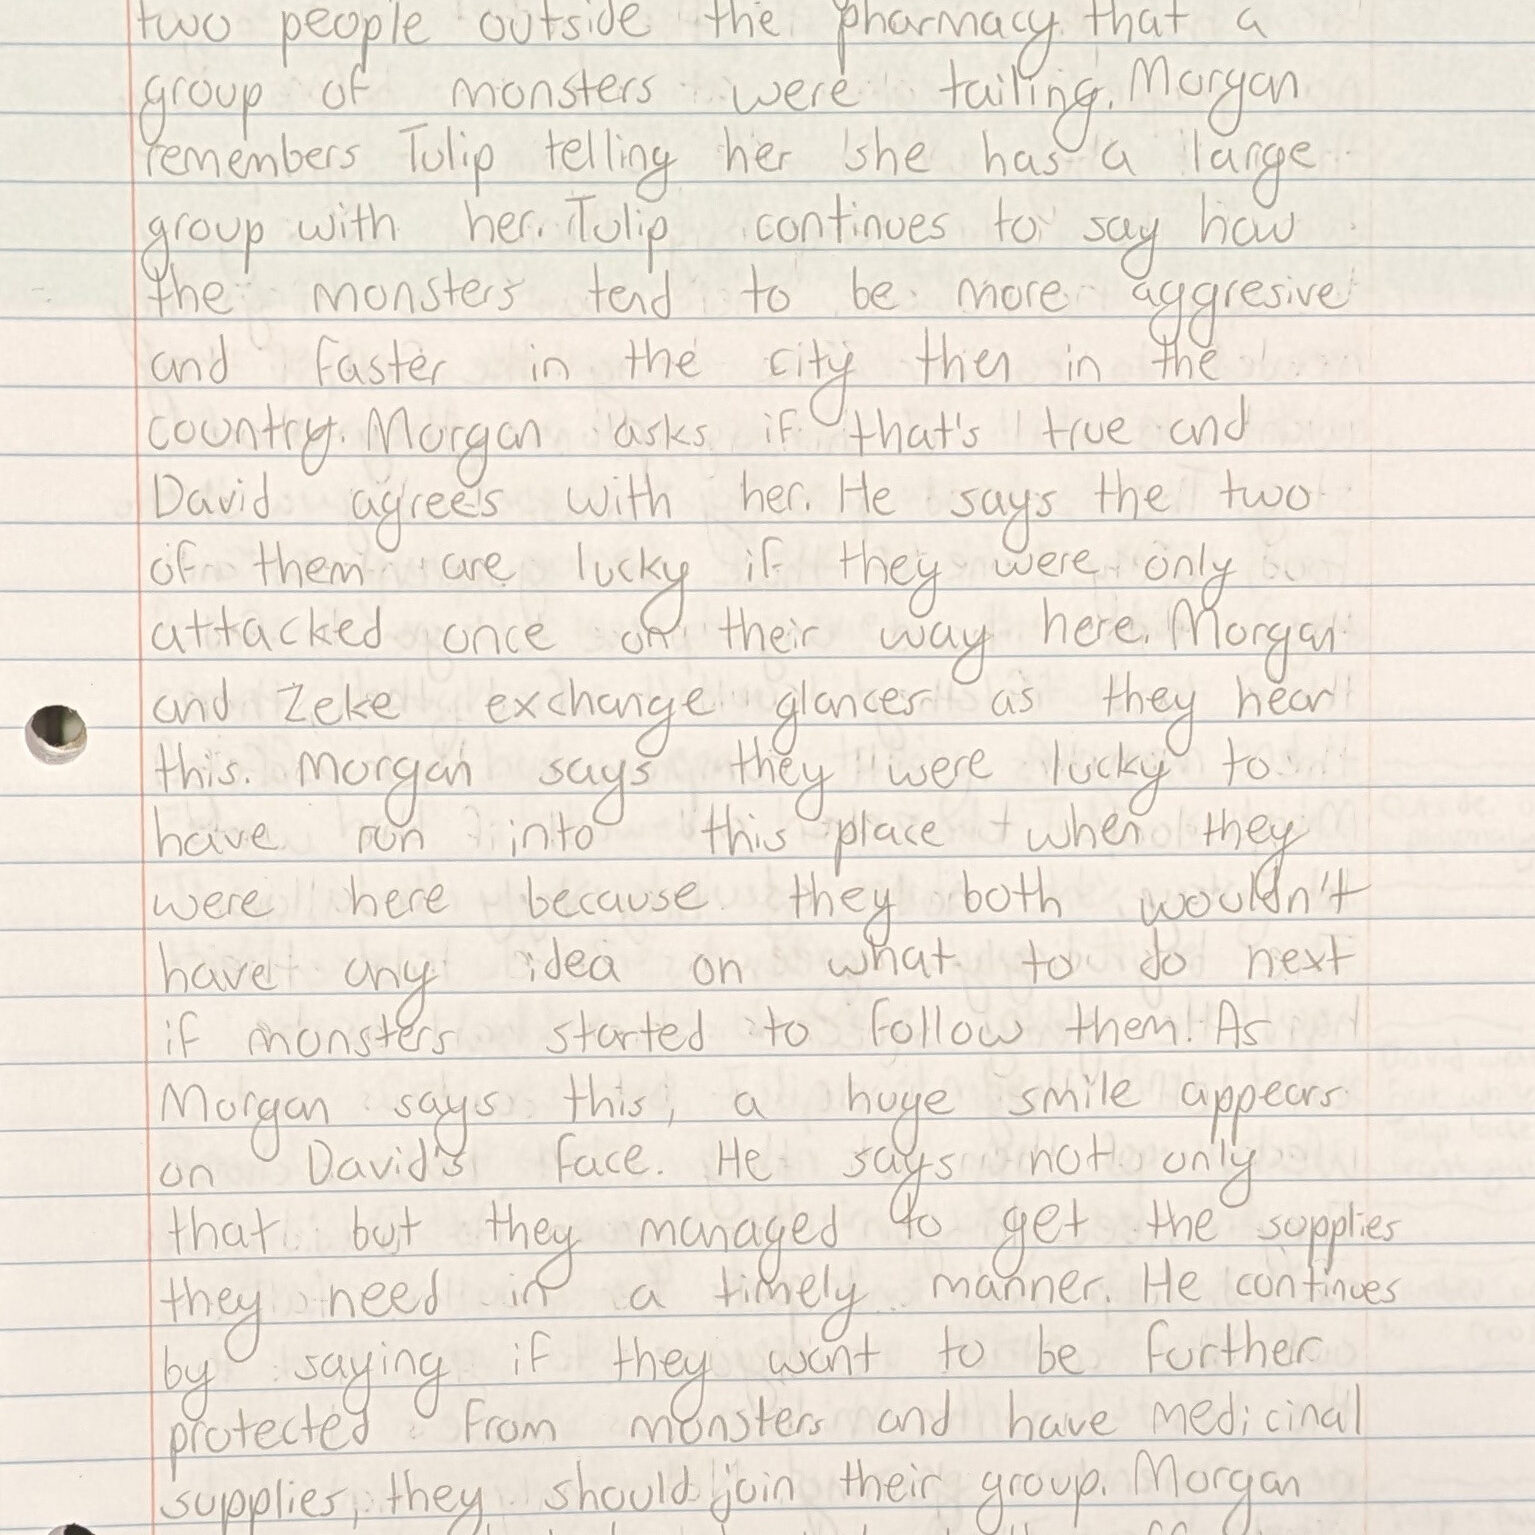 two people outside the pharmacy that a
group of monsters were tailing. Morgan
remembers Tulip telling her she has a large
group with her. Tulip continues to say how
the monsters tend to be more aggresive
and faster in the city then in the
country. Morgan asks if that's true and
David agrees with her. He says the two
of them are lucky if they were only
attacked once on their way here. Morgan
and Zeke exchange glances as they hear
this. Morgan says they were lucky to
have run into this place when they
were here because they both wouldn't
have any idea on what to do next
if monsters started to follow them. As
Morgan says this, a huge smile appears
on David's face. He says not only
that but they managed to get the supplies
they need in a timely manner. He continues
by saying if they want to be further
protected from monsters and have medicinal
supplies, they should join their group. Morgan